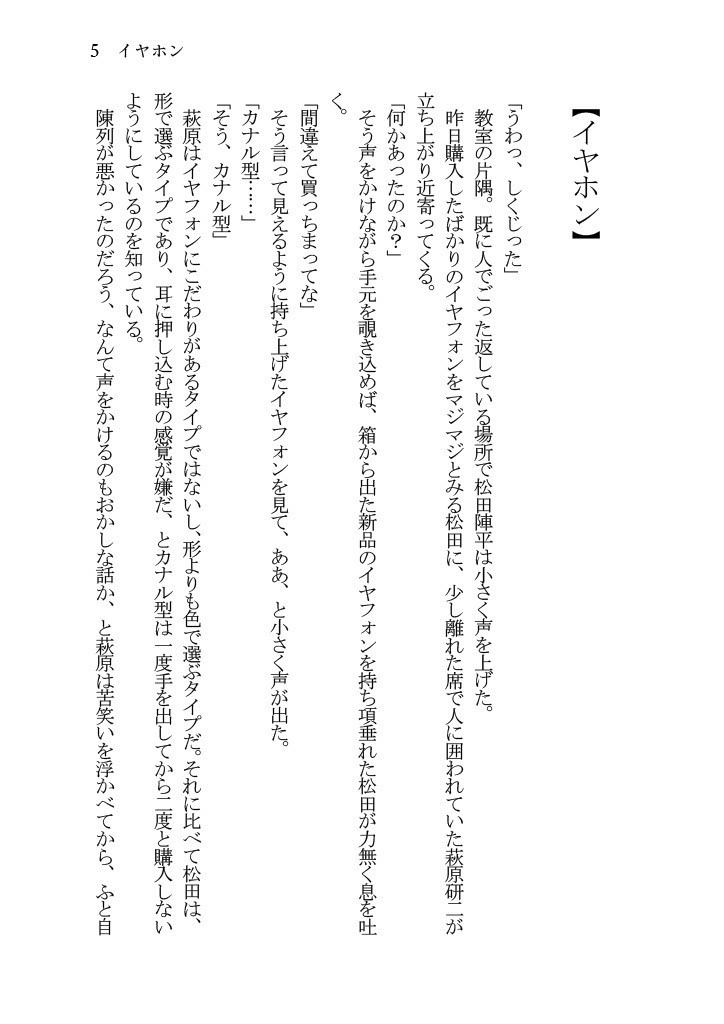 5 イヤホン
【イヤホン】
「うわっ、しくじった」
教室の片隅。既に人でごった返している場所で松田陣平は小さく声を上げた。
昨日購入したばかりのイヤフォンをマジマジとみる松田に、少し離れた席で人に囲われていた萩原研二が
立ち上がり近寄ってくる。
「何かあったのか？」
そう声をかけながら手元を覗き込めば、箱から出た新品のイヤフォンを持ち項垂れた松田が力無く息を吐
く。
「間違えて買っちまってな」
そう言って見えるように持ち上げたイヤフォンを見て、ああ、と小さく声が出た。
「カナル型……」
「そう、カナル型」
萩原はイヤフォンにこだわりがあるタイプではないし、形よりも色で選ぶタイプだ。それに比べて松田は、
形で選ぶタイプであり、耳に押し込む時の感覚が嫌だ、とカナル型は一度手を出してから二度と購入しない
ようにしているのを知っている。
陳列が悪かったのだろう、なんて声をかけるのもおかしな話か、と萩原は苦笑いを浮かべてから、ふと自